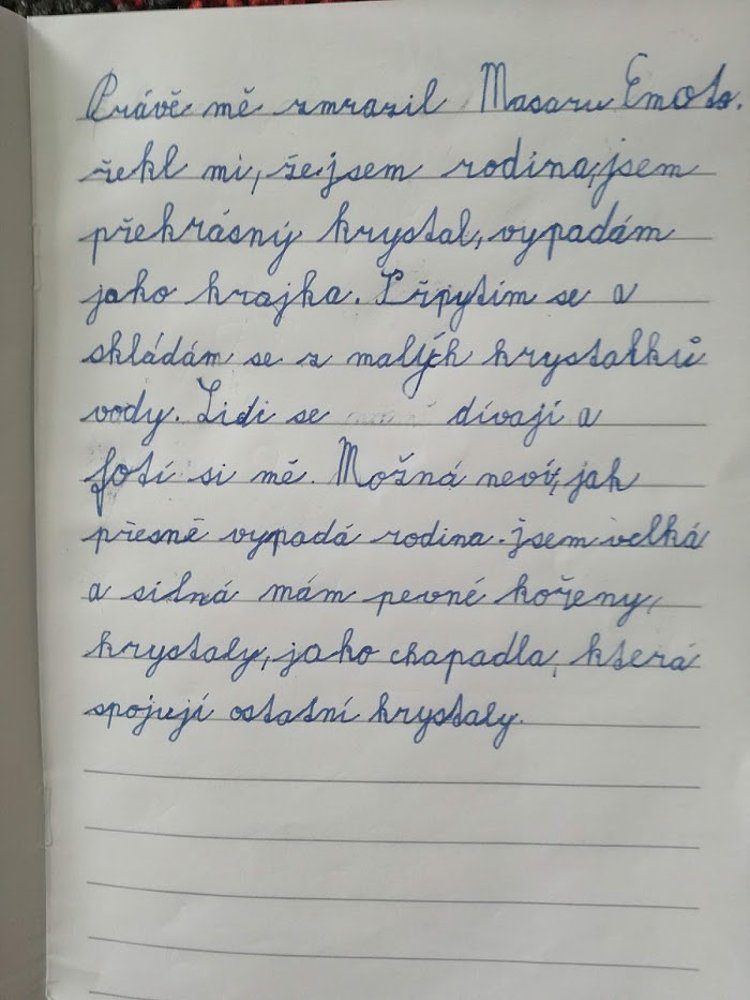 Právě mě zmrazil Masaru Emoto.
řekl mi, že jsem rodina, jsem
překrásný krystal, vypadám
jako krajka. Třpytím se a
skládám se z malých krystalků
vody. Lidi se dívají a
fotí si mě. Možná neví, jak
přesně vypadá rodina. jsem velká
a silná mám pevné kořeny,
krystaly, jako chapadla, která
spojují ostatní krystaly.